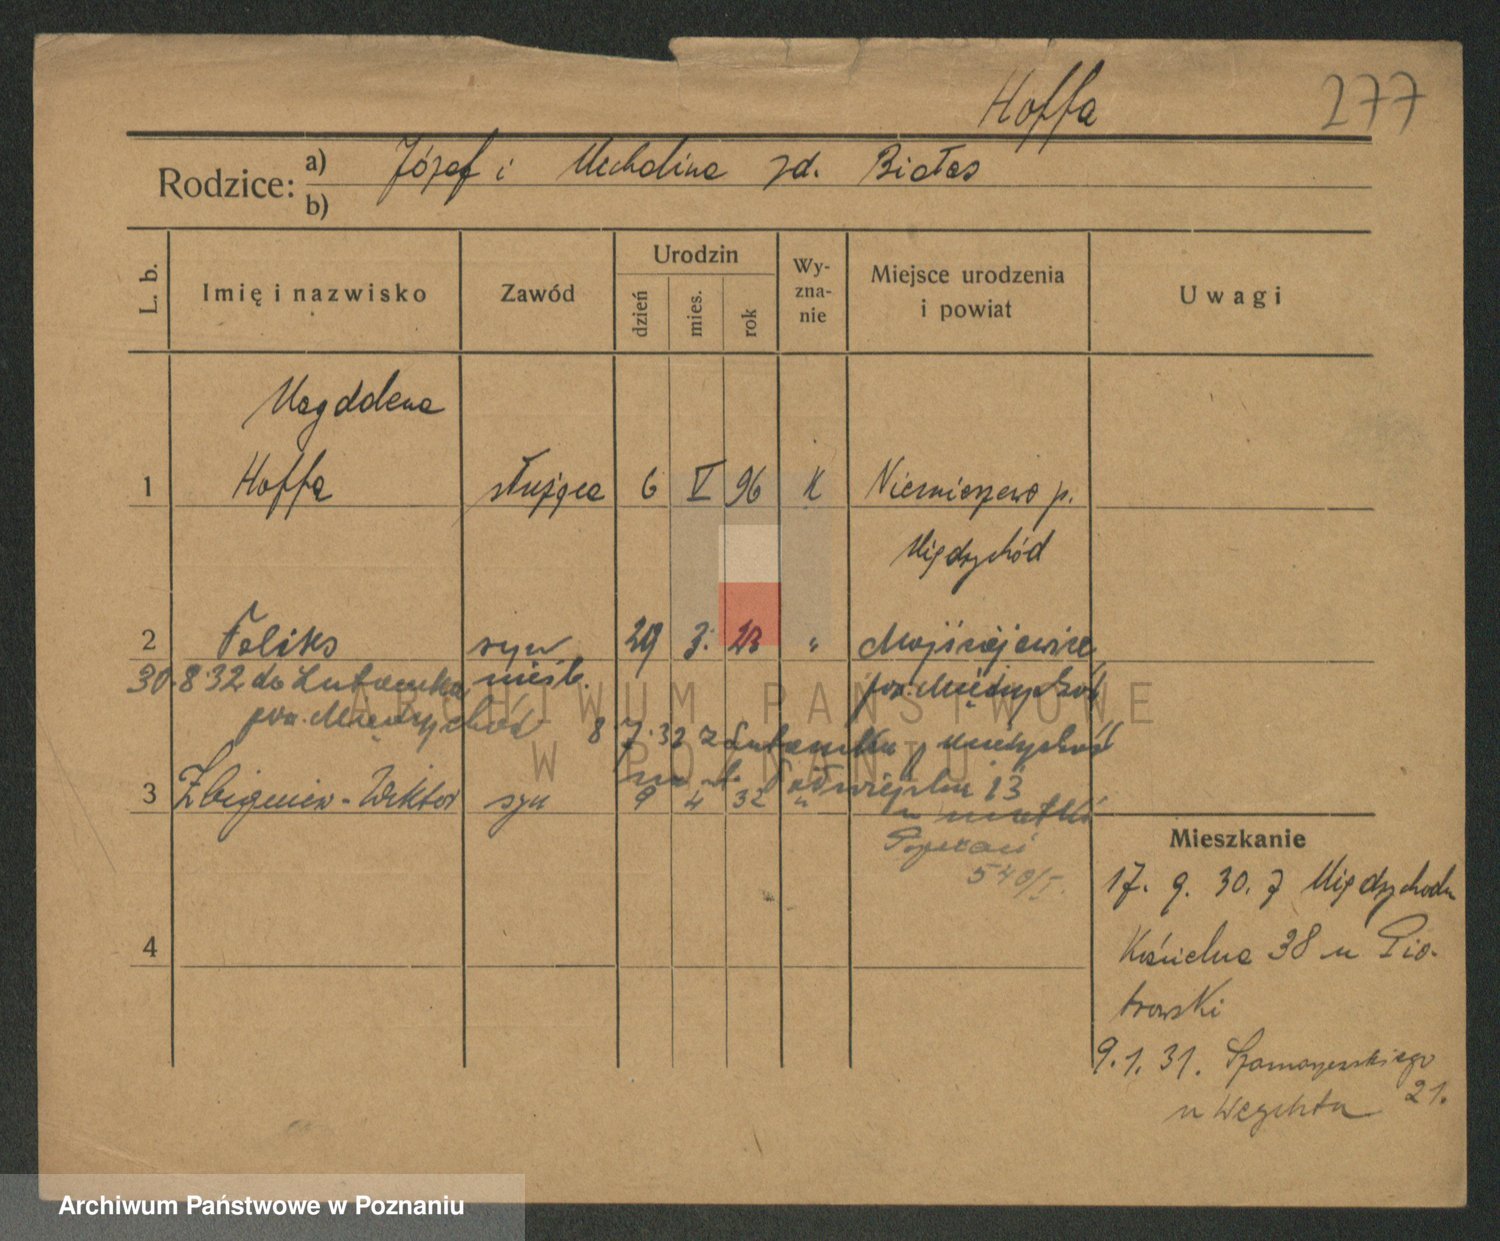 Hoffa 277
Rodzice: a) Józef i Michalina zd. Białas
b)
L. b. Imię i nazwisko Zawód Urodzin dzień mies. rok Wy-zna-nie Miejsce urodzenia i powiat Uwagi
Magdalena
1 Hoffa służąca 6 V 96 K Niemierzewo p.
Międzychód
2 Feliks syn 29 3. 23 "
30.8.32 do nieśl. pow. Międzychód
pow. Międzychód 8.7.32 z Międzychód
13
3 Zbigniew-Wiktor syn 9 4 32 " u matki
Mieszkanie
Poznań
540/I.
17. 9. 30. z Międzychodu
4 Kościelna 38 u Pio-
trowski
9.1.31. Szamarzewskiego
u 21.
ARCHIWUM PAŃSTWOWE
W POZNANIU
Archiwum Państwowe w Poznaniu